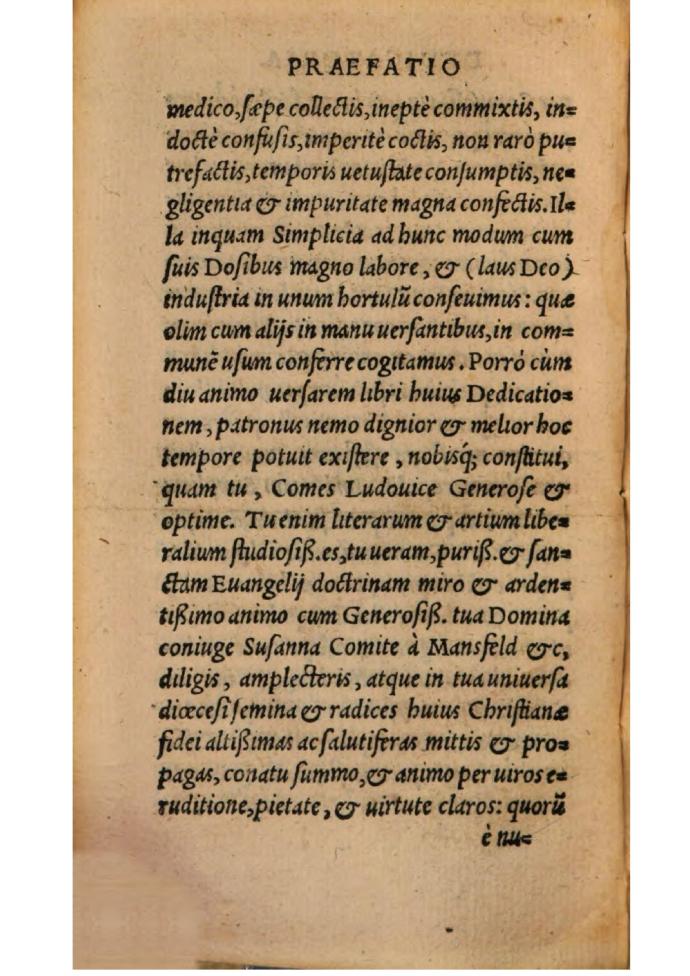 PRAEFATIO
medico, sæpe collectis, ineptè commixtis, in=
doctè confusis, imperitè coctis, non rarò pu=
trefactis, temporis uetustate consumptis, ne=
gligentia & impuritate magna confectis. Il=
la inquam Simplicia ad hunc modum cum
suis Dosibus magno labore, & (laus Deo)
industria in unum hortulũ conseuimus: quæ
olim cum alijs in manu uersantibus, in com=
munẽ usum conferre cogitamus. Porrò cùm
diu animo uersarem libri huius Dedicatio=
nem, patronus nemo dignior & melior hoc
tempore potuit existere, nobisq́; constitui,
quam tu, Comes Ludouice Generose &
optime. Tu enim literarum & artium libe=
ralium studiosiß. es, tu ueram, puriß. & san=
ctam Euangelij doctrinam miro & arden=
tißimo animo cum Generosiß. tua Domina
coniuge Susanna Comite à Mansfeld &c,
diligis, amplecteris, atque in tua uniuersa
diœcesi semina & radices huius Christianæ
fidei altißimas ac salutiferas mittis & pro=
pagas, conatu summo, & animo per uiros e=
ruditione, pietate, & uirtute claros: quorũ
è nu=